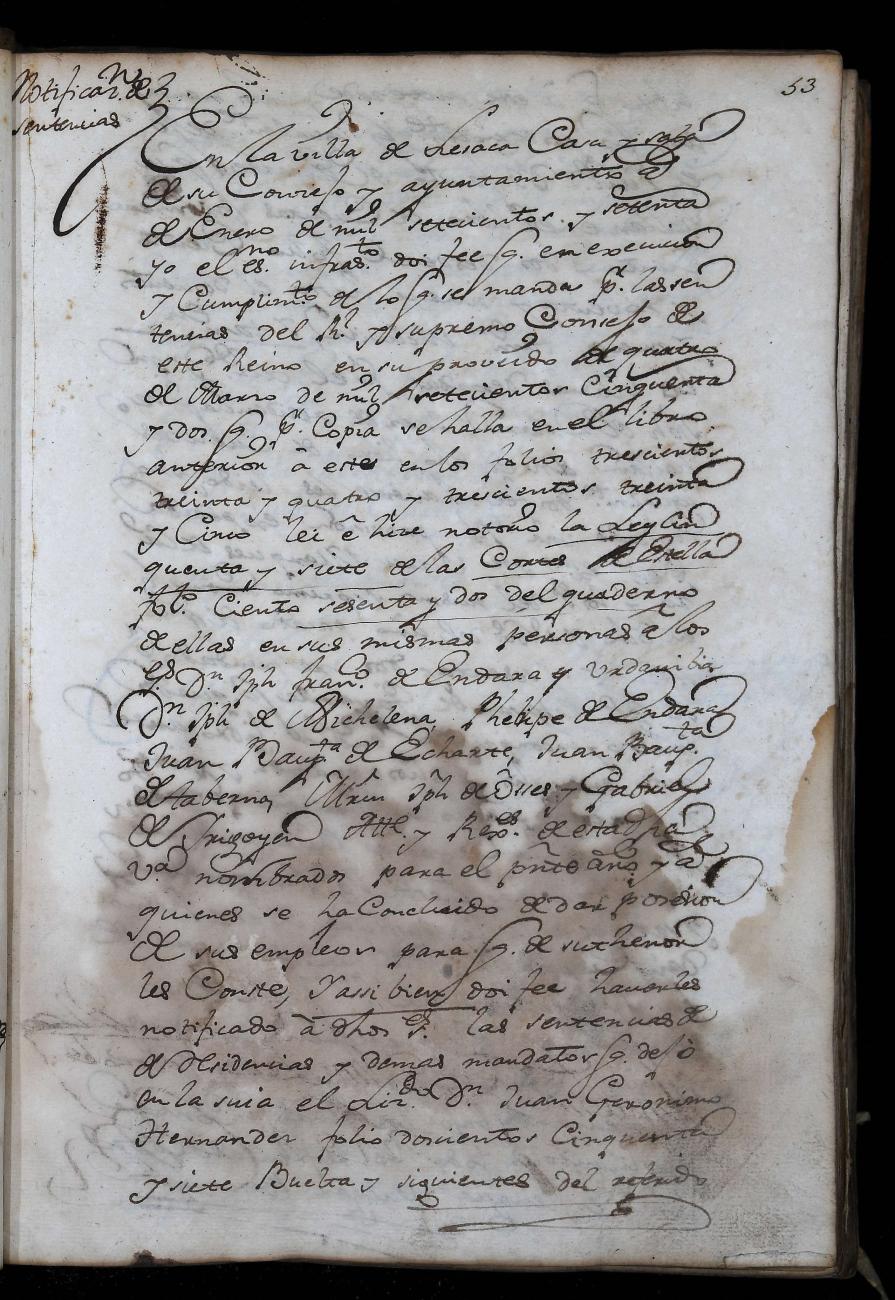 53
Notificaz.n de
sentencias
En la villa de Lesaca Casa y sala
de su Concejo y ayuntamiento a
de Enero de mil setecientos y setenta
yo el es.no infras.to doi fee q. en execucion
y Cumplim.to de lo q. se manda p.r las sen
tencias del R.l y supremo Consejo de
este Reino en su proveido de quatro
de Marzo de mil setecientos Cinquenta
y dos q. p.r Copia se halla en el libro
anterior â este en los folios trescientos
treinta y quatro y trescientos treinta
y Cinco lei ê hice notorio la Ley Cin
quenta y siete de las Cortes de Estella
fol.o Ciento sesenta y dos del quaderno
de ellas en sus mismas personas â los
s.es D.n Jph fran.co de Endara y Urdanibia
D.n Jph de Michelena Phelipe de Endara
Juan Baup.ta de Echarte, Juan Baup.ta
de taberna, Mrn Jph de y Gabriel
de Yrigoyen Alle y Rex.es de esta dha
v.a nombrados para el pnte año y â
quienes se ha Concluido de dar posesion
de sus empleos para q. de su thenor
les Conste, Y assi bien doi fee haverles
notificado â dhos s.es las sentencias de
de Residencias y demas mandatos q. dejó
en la suia el Liz.do D.n Juan Geronimo
Hernandez folio doscientos Cinquenta
y siete Buelta y siguientes del referido